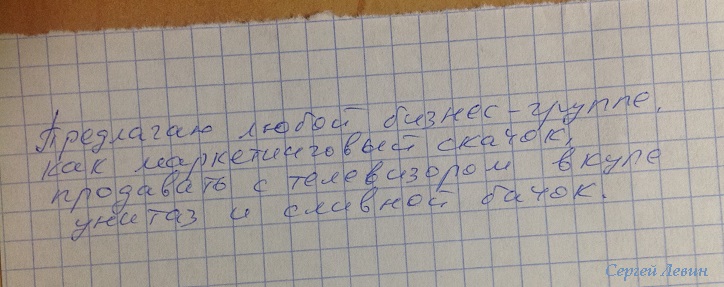 Предлагаю любой бизнес-группе,
как маркетинговый скачок,
продавать с телевизором вкупе
унитаз и сливной бачок.
Сергей Левин